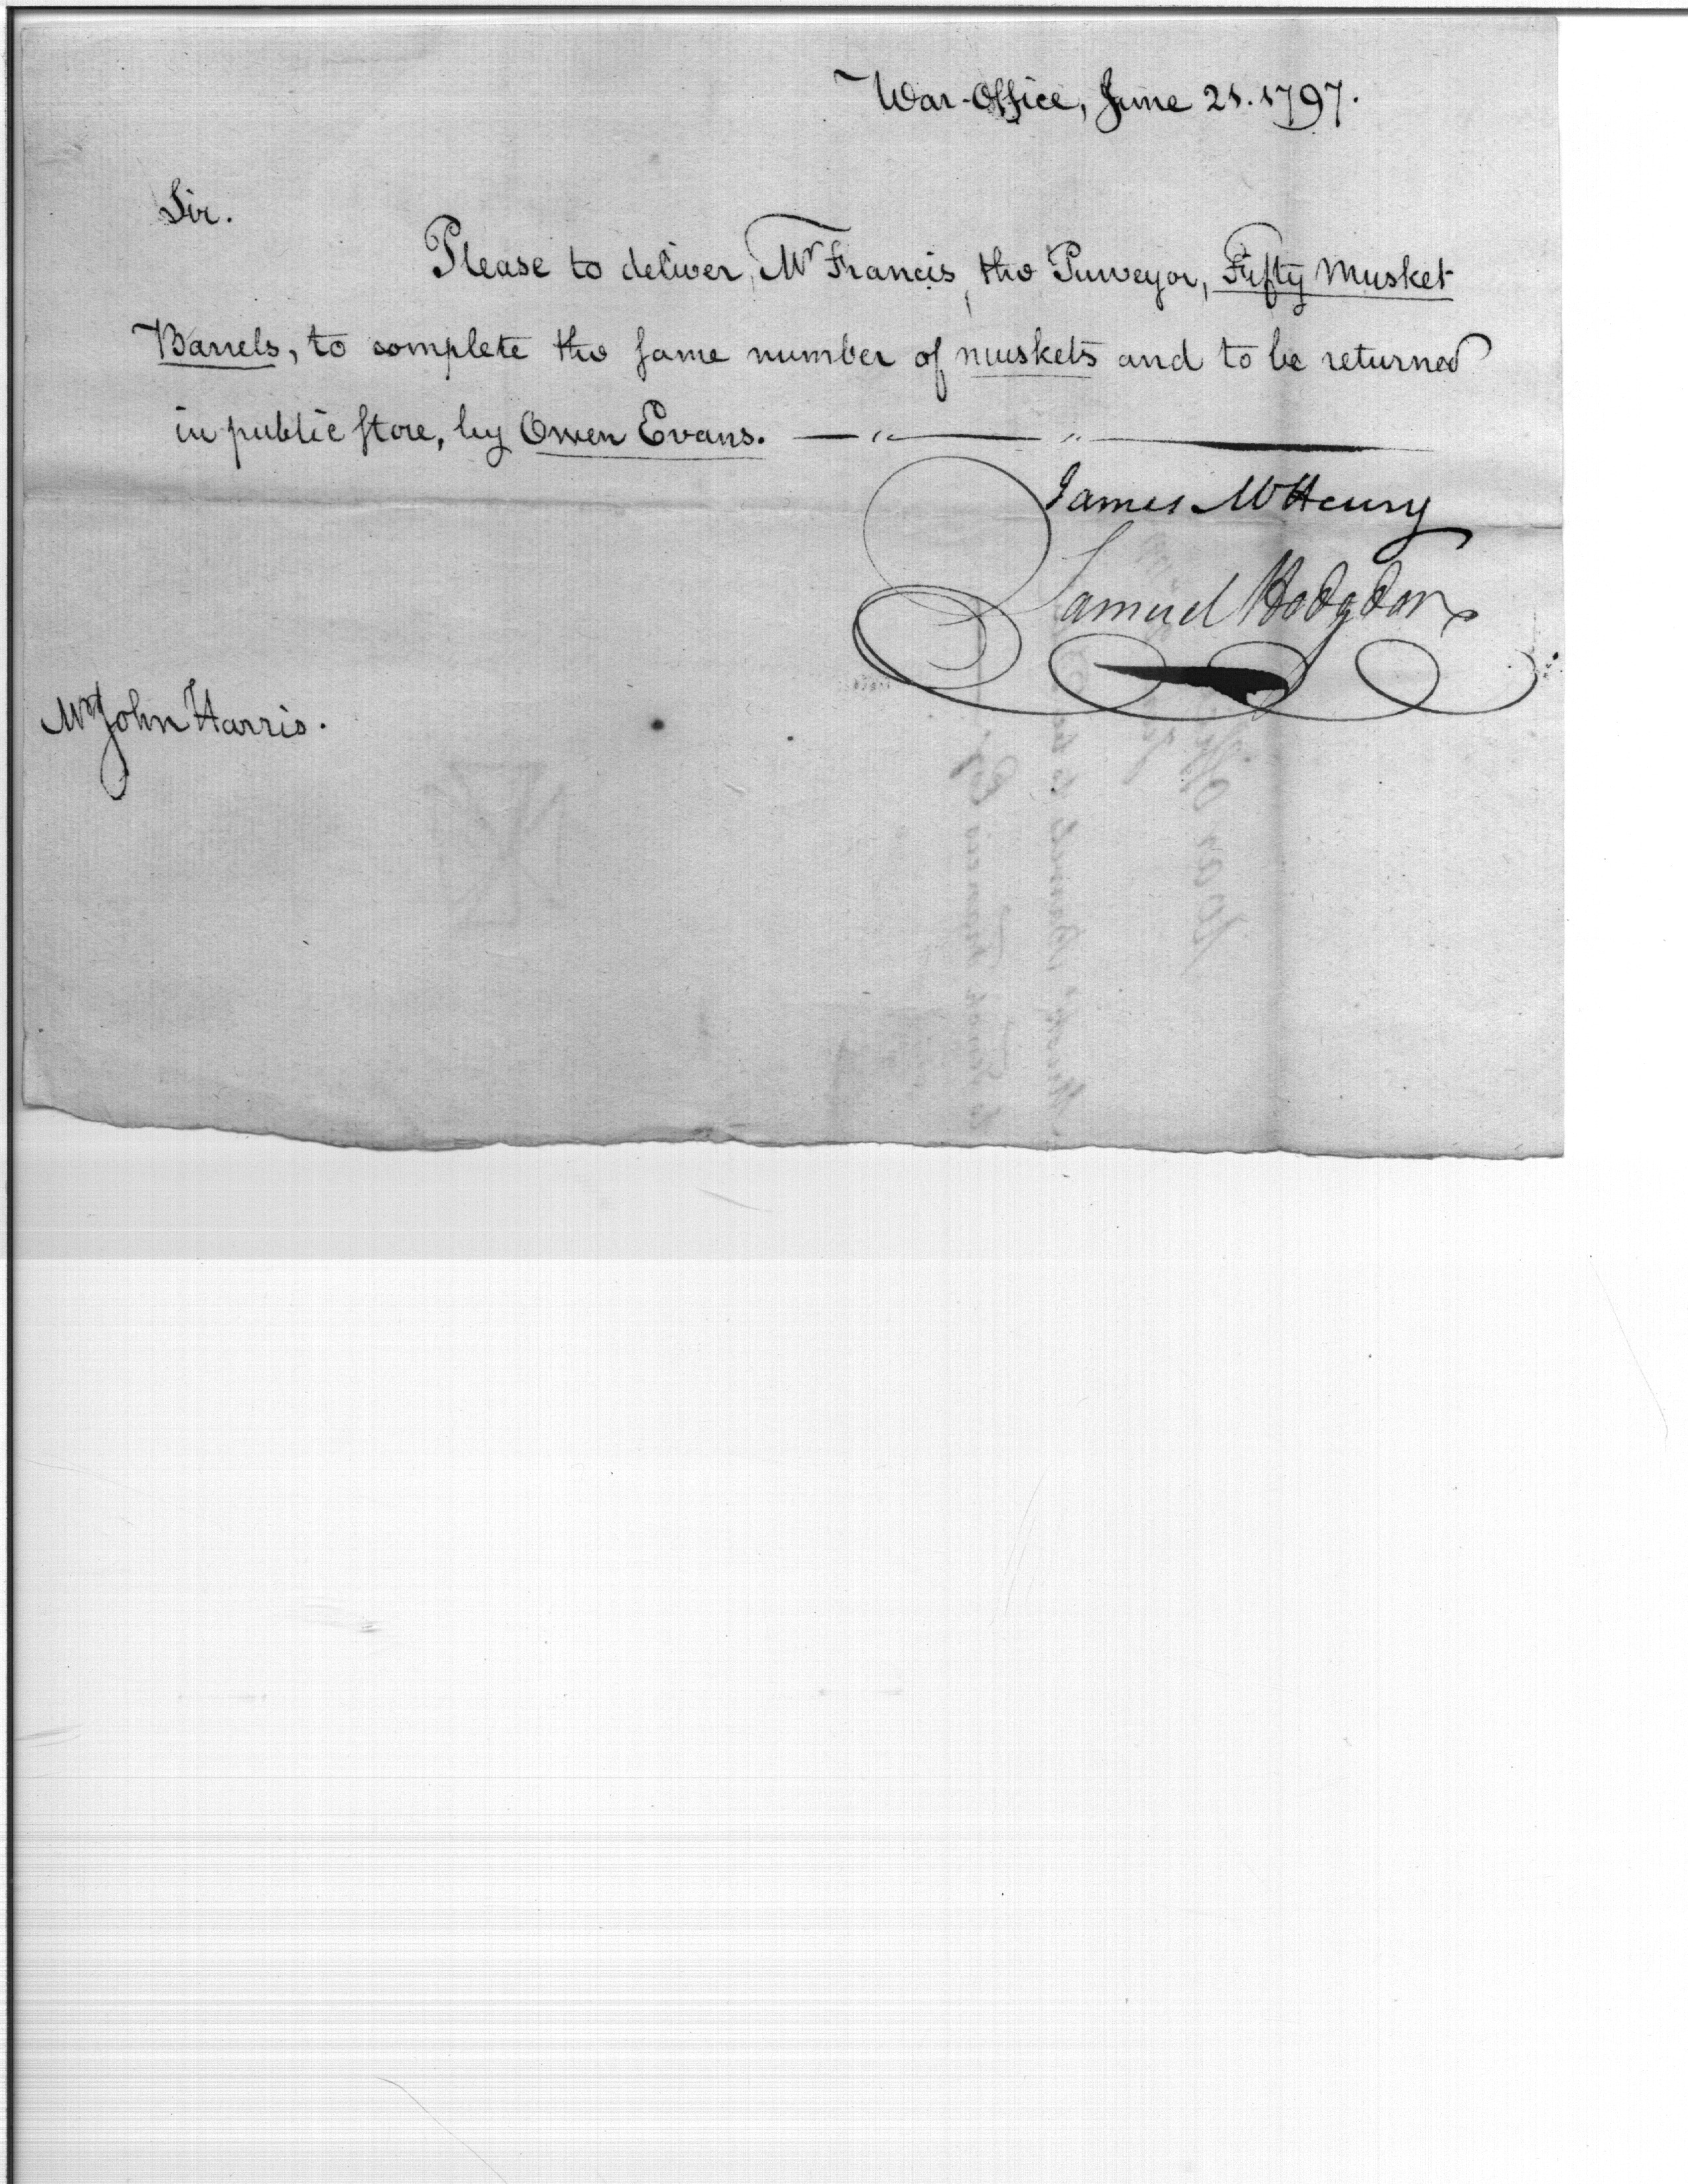 War-Office, June 21. 1797.
Sir.
Please to deliver, Mr Francis, the Purveyor, Fifty Musket
Barrels, to complete the same number of muskets and to be returned
in public store, by Owen Evans.
James McHenry
Samuel Hodgdon
Mr John Harris.